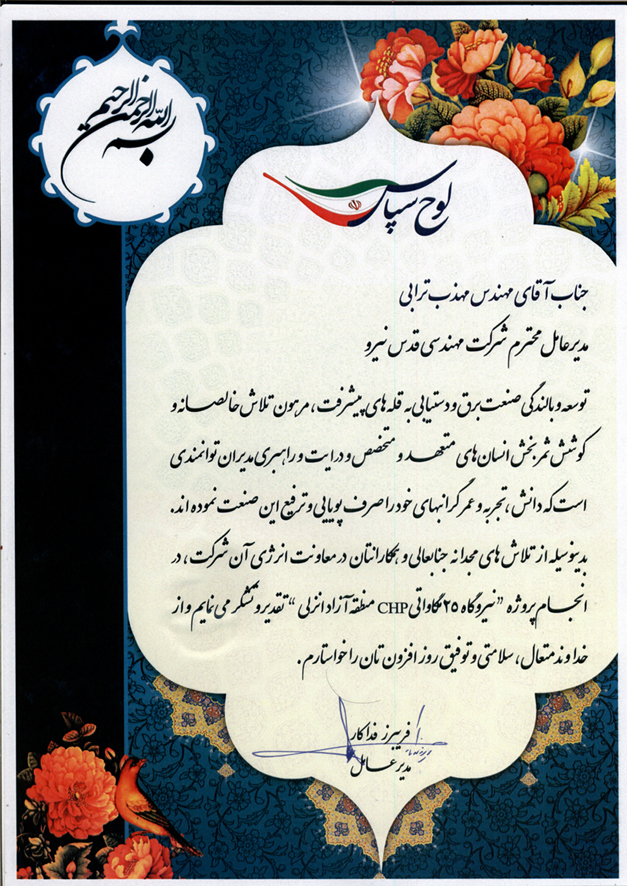 بسم الله الرحمن الرحیم
لوح سپاس
جناب آقای مهندس مهذب ترابی
مدیرعامل محترم شرکت مهندسی قدس نیرو
توسعه و بالندگی صنعت برق و دستیابی به قله های پیشرفت، مرهون تلاش خالصانه و
کوشش ثمربخش انسان های متعهد و متخصص و درایت و راهبری مدیران توانمندی
است که دانش، تجربه و عمر گرانبهای خود را صرف پویایی و ترفیع این صنعت نموده اند.
بدینوسیله از تلاش های مجدانه جنابعالی و همکارانتان در معاونت انرژی آن شرکت، در
انجام پروژه "نیروگاه ۲۵ مگاواتی CHP منطقه آزاد انزلی" تقدیر و تشکر می نمایم و از
خداوند متعال، سلامتی و توفیق روز افزون تان را خواستارم.
فریبرز فداکار
مدیرعامل